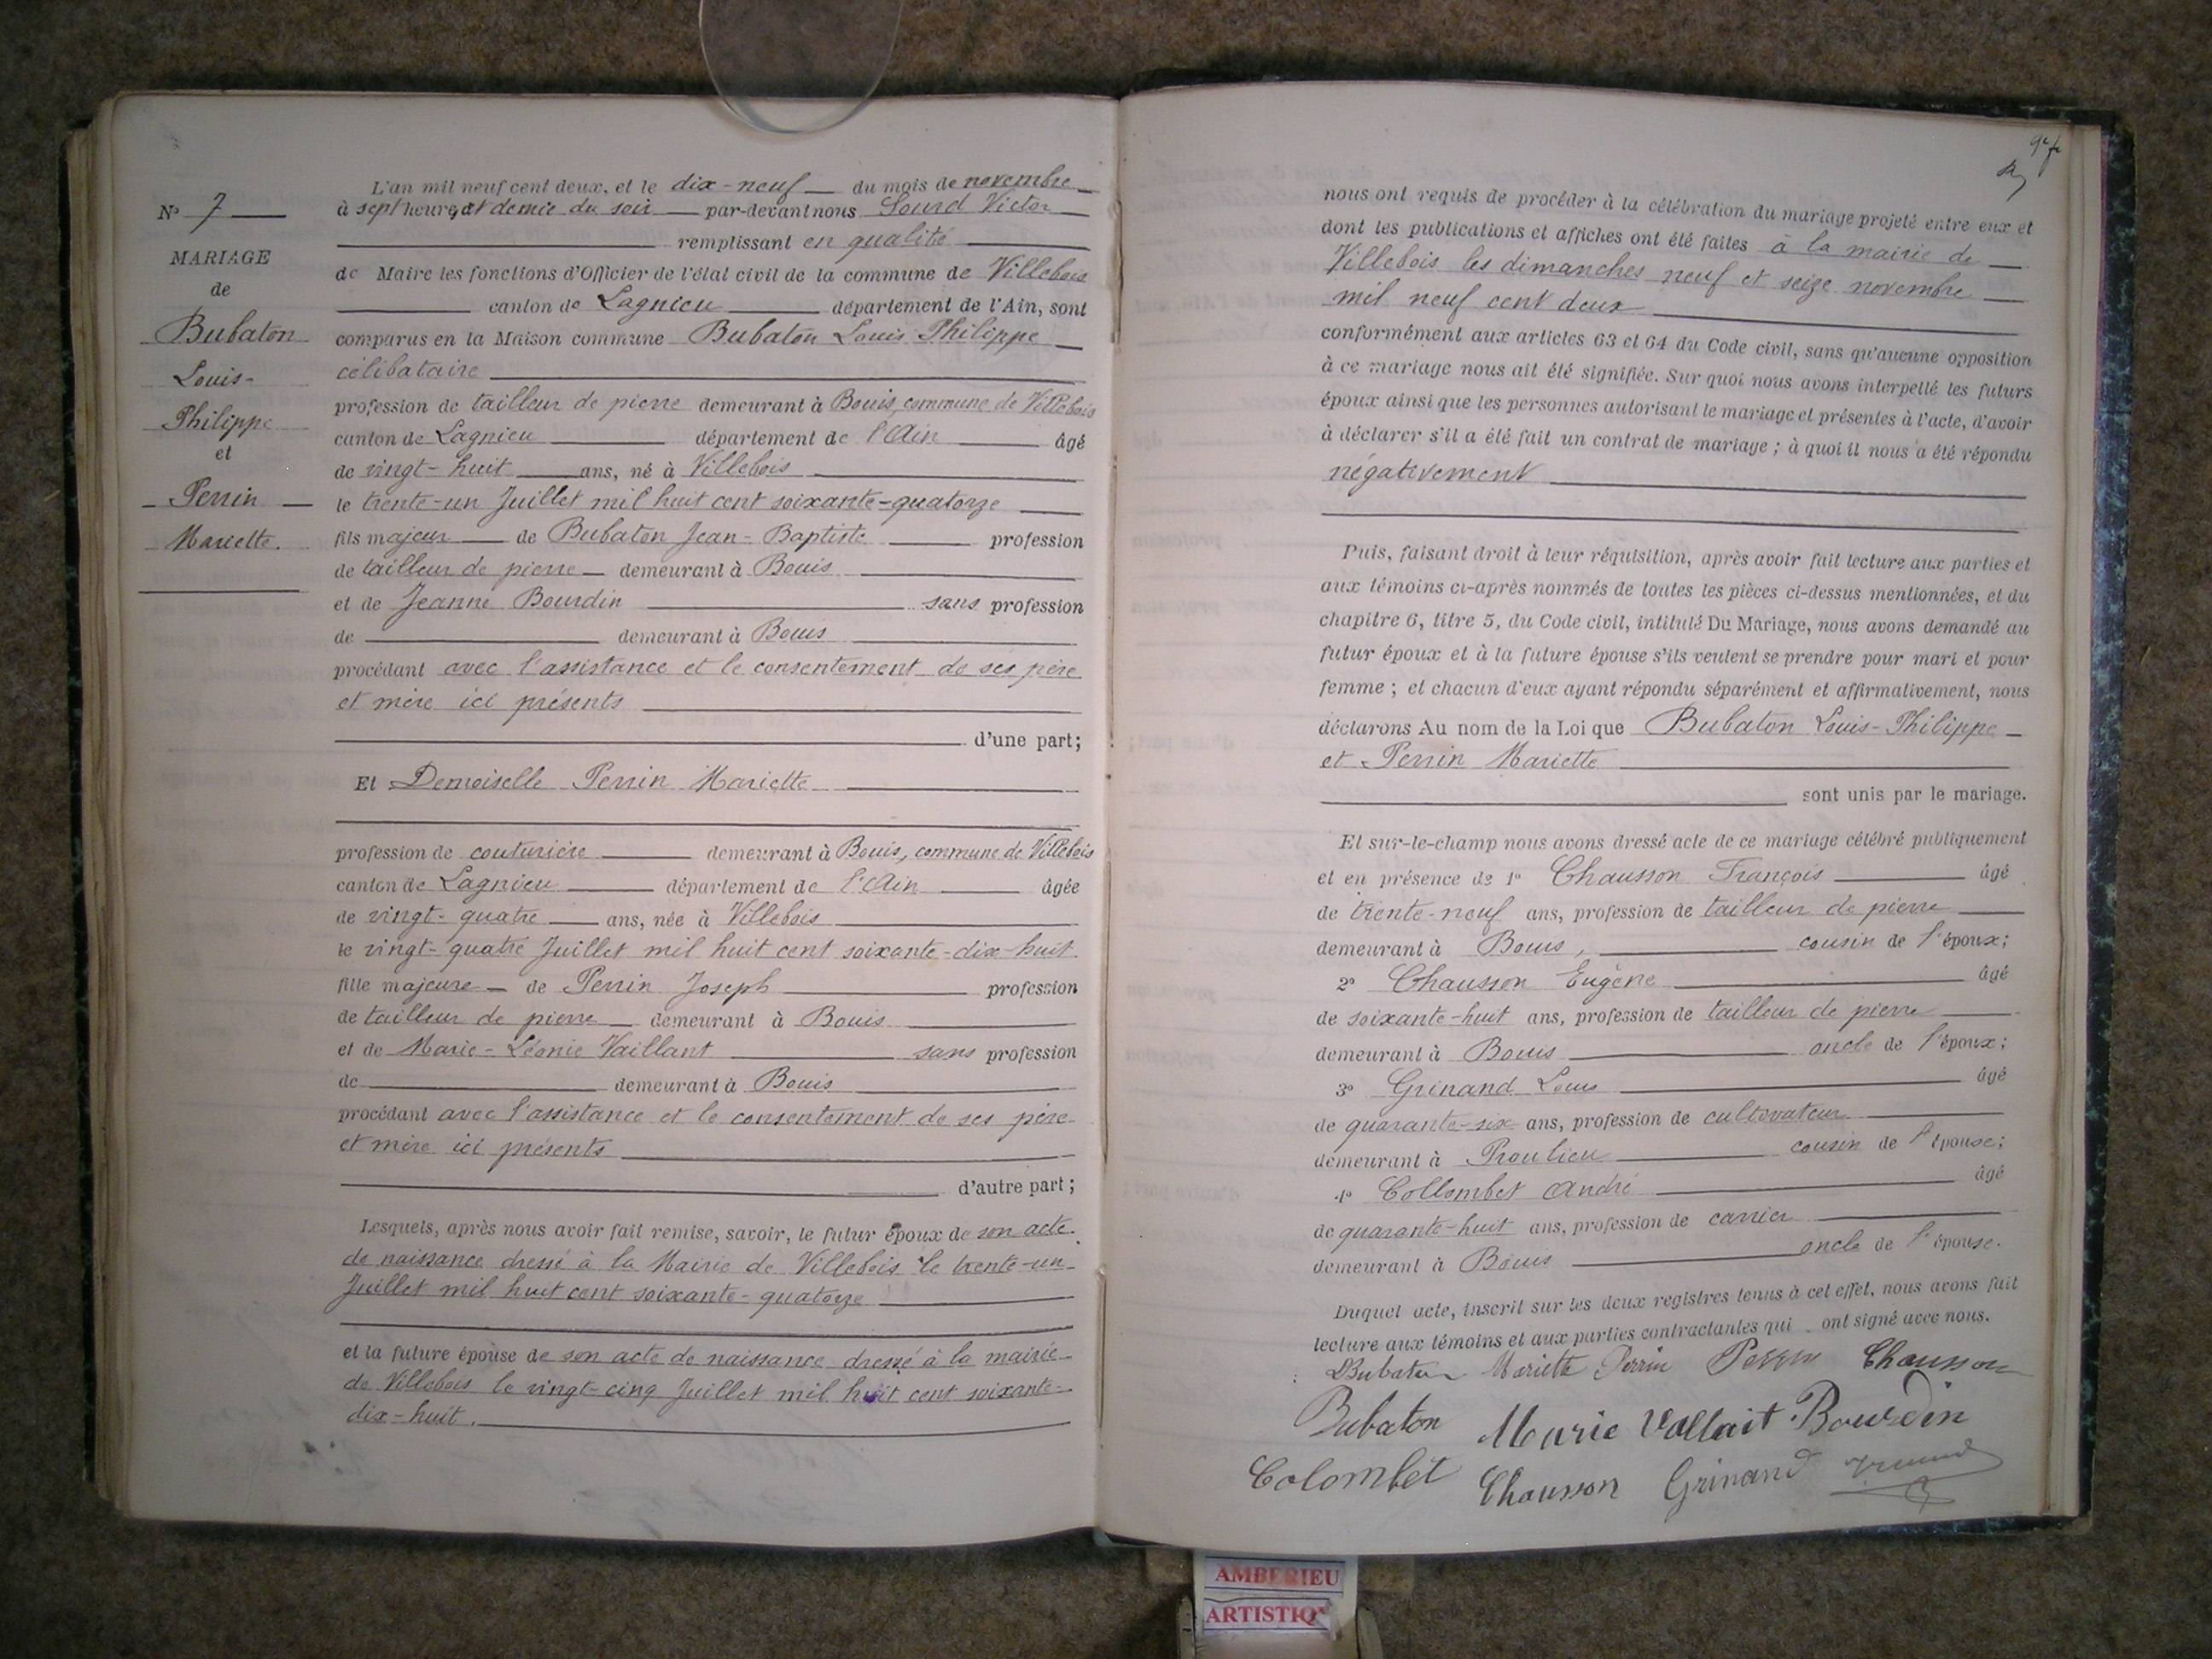 N° 7
MARIAGE
de
Bubaton
Louis-
Philippe
et
Perrin
Mariette.
L'an mil neuf cent deux, et le dix-neuf du mois de novembre
à sept heures et demie du soir par-devant nous Sourd Victor
remplissant en qualité
de Maire les fonctions d'Officier de l'état civil de la commune de Villebois
canton de Lagnieu département de l'Ain, sont
comparus en la Maison commune Bubaton Louis Philippe
célibataire
profession de tailleur de pierre demeurant à Bouis, commune de Villebois
canton de Lagnieu département de l'Ain âgé
de vingt-huit ans, né à Villebois
le trente-un Juillet mil huit cent soixante-quatorze
fils majeur de Bubaton Jean-Baptiste profession
de tailleur de pierre demeurant à Bouis
et de Jeanne Bourdin sans profession
de demeurant à Bouis
procédant avec l'assistance et le consentement de ses père
et mère ici présents
d'une part;
Et Demoiselle Perrin Mariette
profession de couturière demeurant à Bouis, commune de Villebois
canton de Lagnieu département de l'Ain âgée
de vingt-quatre ans, née à Villebois
le vingt-quatre Juillet mil huit cent soixante-dix-huit
fille majeure de Perrin Joseph profession
de tailleur de pierre demeurant à Bouis
et de Marie-Léonie Vaillant sans profession
de demeurant à Bouis
procédant avec l'assistance et le consentement de ses père
et mère ici présents
d'autre part;
Lesquels, après nous avoir fait remise, savoir, le futur époux de son acte
de naissance dressé à la Mairie de Villebois le trente-un
Juillet mil huit cent soixante-quatorze
et la future épouse de son acte de naissance dressé à la mairie
de Villebois le vingt-cinq Juillet mil huit cent soixante-
dix-huit.
nous ont requis de procéder à la célébration du mariage projeté entre eux et
dont les publications et affiches ont été faites à la mairie de
Villebois les dimanches neuf et seize novembre
mil neuf cent deux
conformément aux articles 63 et 64 du Code civil, sans qu'aucune opposition
à ce mariage nous ait été signifiée. Sur quoi nous avons interpellé les futurs
époux ainsi que les personnes autorisant le mariage et présentes à l'acte, d'avoir
à déclarer s'il a été fait un contrat de mariage; à quoi il nous a été répondu
négativement
Puis, faisant droit à leur réquisition, après avoir fait lecture aux parties et
aux témoins ci-après nommés de toutes les pièces ci-dessus mentionnées, et du
chapitre 6, titre 5, du Code civil, intitulé Du Mariage, nous avons demandé au
futur époux et à la future épouse s'ils veulent se prendre pour mari et pour
femme; et chacun d'eux ayant répondu séparément et affirmativement, nous
déclarons Au nom de la Loi que Bubaton Louis-Philippe
et Perrin Mariette
sont unis par le mariage.
Et sur-le-champ nous avons dressé acte de ce mariage célébré publiquement
et en présence de 1° Chausson François âgé
de trente-neuf ans, profession de tailleur de pierre
demeurant à Bouis, cousin de l'époux;
2° Chausson Eugène âgé
de soixante-huit ans, profession de tailleur de pierre
demeurant à Bouis oncle de l'époux;
3° Grinand Louis âgé
de quarante-six ans, profession de cultivateur
demeurant à Proulieu cousin de l'épouse;
4° Collombet André âgé
de quarante-huit ans, profession de carrier
demeurant à Bouis oncle de l'épouse.
Duquel acte, inscrit sur les deux registres tenus à cet effet, nous avons fait
lecture aux témoins et aux parties contractantes qui ont signé avec nous.
Bubaton Mariette Perrin Perrin Chausson
Bubaton Marie Vallait Bourdin
Colombet Chausson Grinand
AMBERIEU
ARTISTIQ